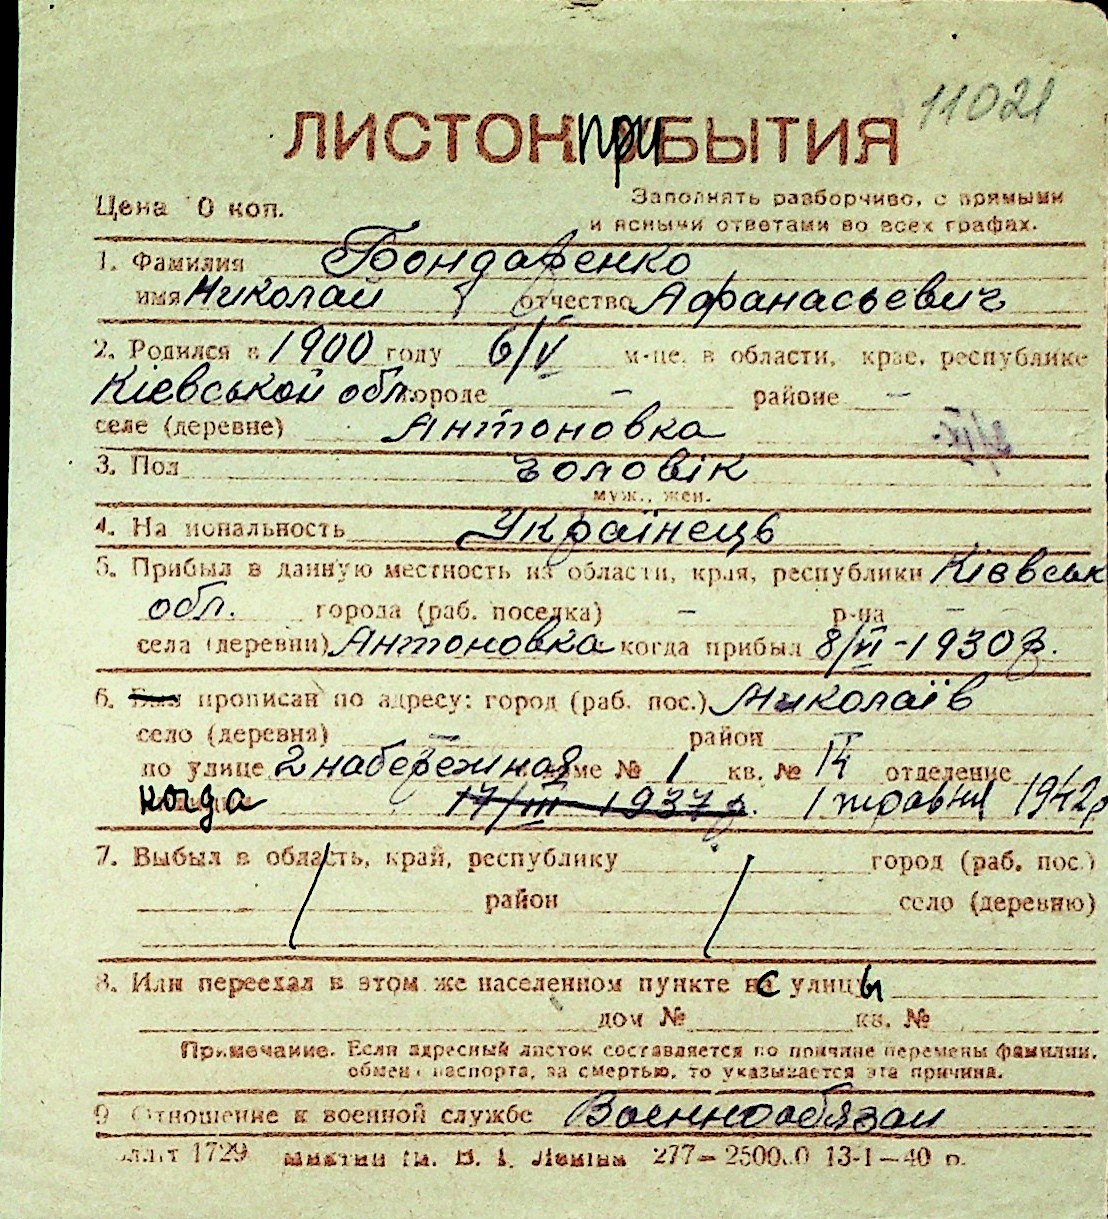 11021
ЛИСТОК ПРИБЫТИЯ
Цена 10 коп.
Заполнять разборчиво, с прямыми
и ясными ответами во всех графах.
1. Фамилия Бондаренко
имя Николай отчество Афанасьевич
2. Родился в 1900 году 6/V м-це, в области, крае, республике
Кіевськой обл. городе – районе –
селе (деревне) Антоновка
3. Пол чоловік
муж., жен.
4. Национальность Українець
5. Прибыл в данную местность из области, края, республики Кіевськ
обл. города (раб. поселка) – р-на –
села (деревни) Антоновка когда прибыл 8/VI-1930 г.
6. Был прописан по адресу: город (раб. пос.) Миколаїв
село (деревня) – район
по улице 2 набережная доме № 1 кв. № отделение
когда 17/III 1937 г. 1 травня 1942 р
7. Выбыл в область, край, республику город (раб. пос.)
район село (деревню)
8. Или переехал в этом же населенном пункте с улицы
дом № кв. №
Примечание. Если адресный листок составляется по причине перемены фамилии,
обмена паспорта, за смертью, то указывается эта причина.
9. Отношение к военной службе Военнообязан
1729 им. В. И. Ленина 277— 13-I—40 р.